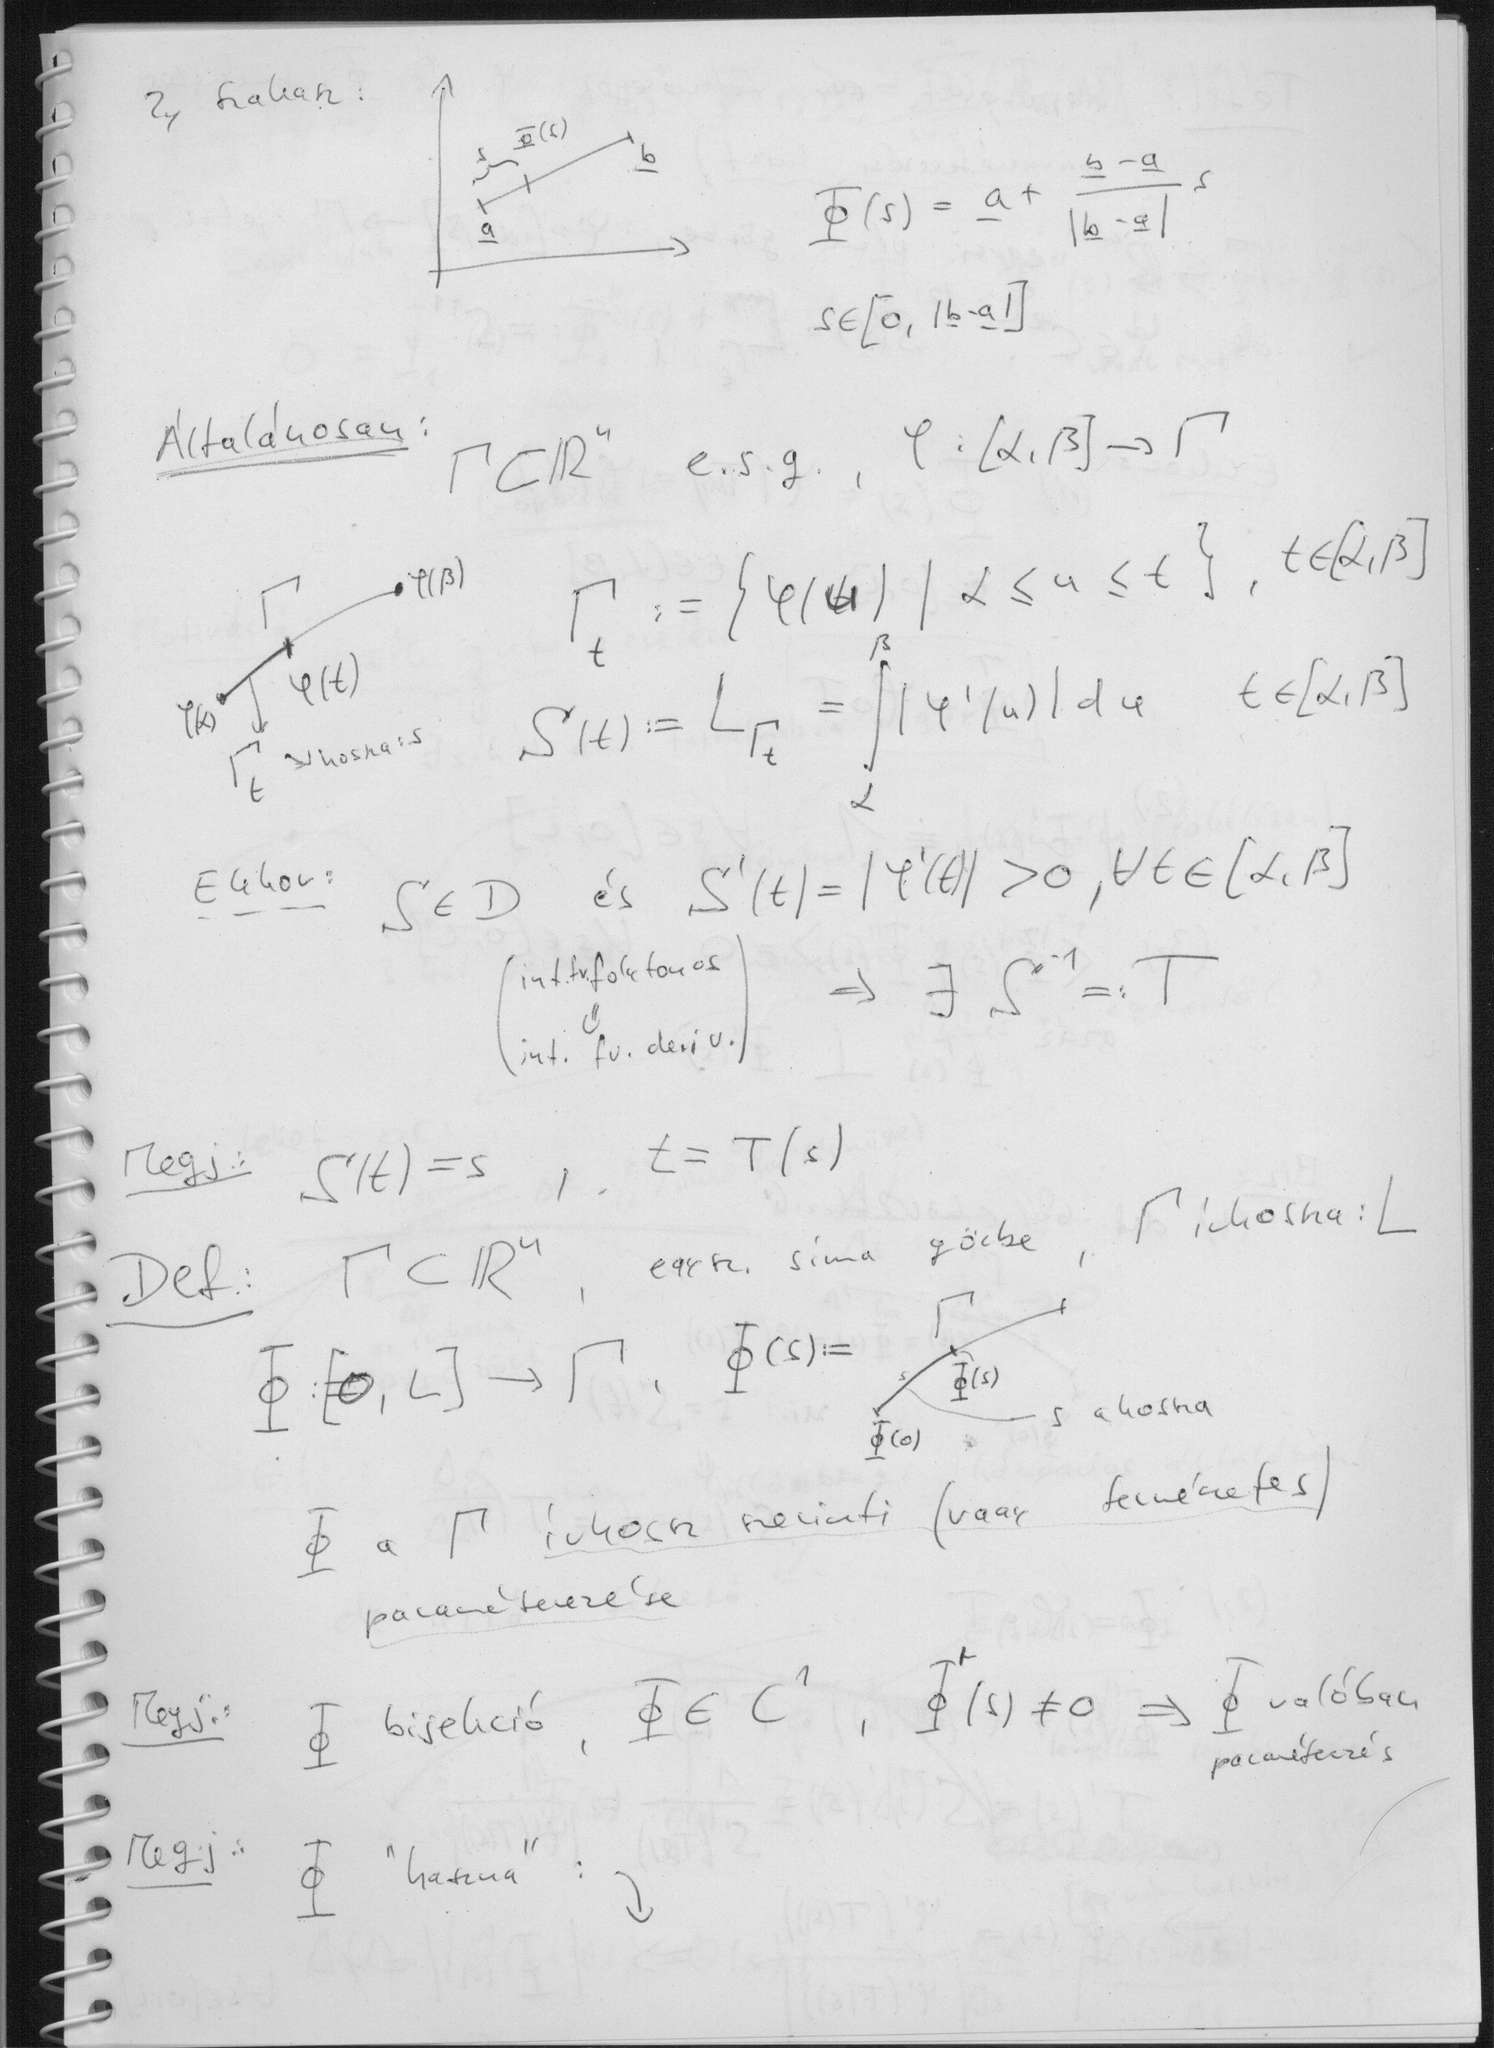 2, szakasz:
Φ(s)
s
b
a
Φ(s) = a + (b - a)/|b - a| s
s∈[0, |b-a|]
Általánosan: Γ⊂ℝⁿ e.s.g., φ: [α,β]→Γ
Γ φ(β)
φ(t)
φ(α)
Γ_t ívhossza: s
Γ_t := {φ(u) | α ≤ u ≤ t}, t∈[α,β]
S(t) := L_Γt = ∫_α^β |φ'(u)| du t∈[α,β]
Ekkor: S∈D és S'(t) = |φ'(t)| > 0, ∀t∈[α,β]
(int. fv. folytonos
⇓
int. fv. deriv.)
⇒ ∃ S⁻¹ =: T
Megj.: S(t) = s, t = T(s)
Def.: Γ⊂ℝⁿ, egysz. sima görbe, Γ ívhossza: L
Φ: [0, L] → Γ, Φ(s) :=
Γ
s
Φ(s)
Φ(0)
s a hossza
Φ a Γ ívhossz szerinti (vagy természetes)
paraméterezése
Megj.: Φ bijekció, Φ∈C¹, Φ'(s) ≠ 0 ⇒ Φ valóban
paraméterezés
Megj.: Φ "haszna": ↓